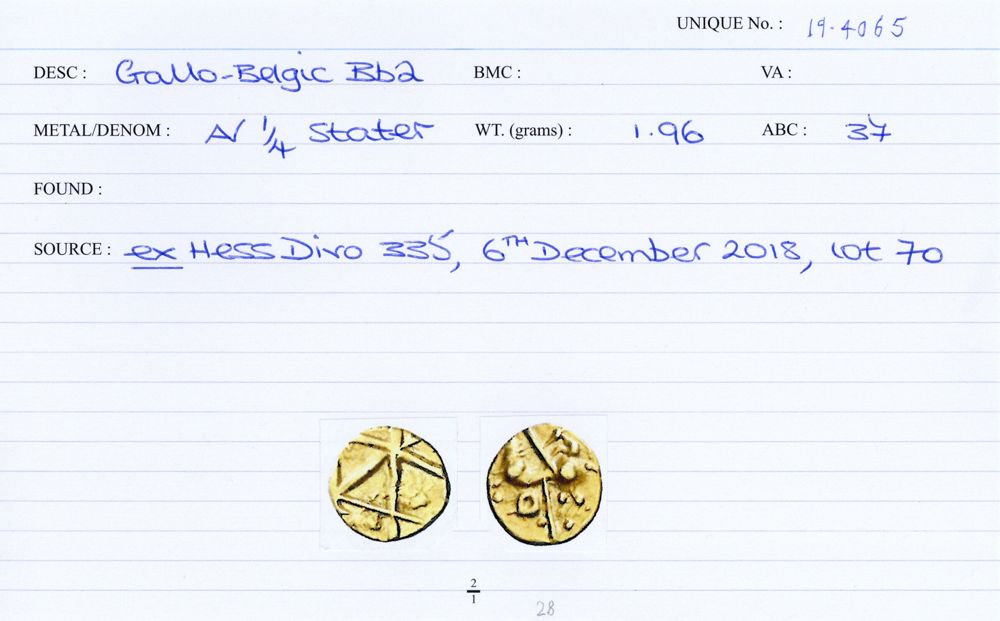 UNIQUE No. : 19.4065
DESC : Gallo-Belgic Bb2 BMC : VA :
METAL/DENOM : AV 1/4 Stater WT. (grams) : 1.96 ABC : 37
FOUND :
SOURCE : ex Hess Divo 335, 6TH December 2018, lot 70
2/1
28